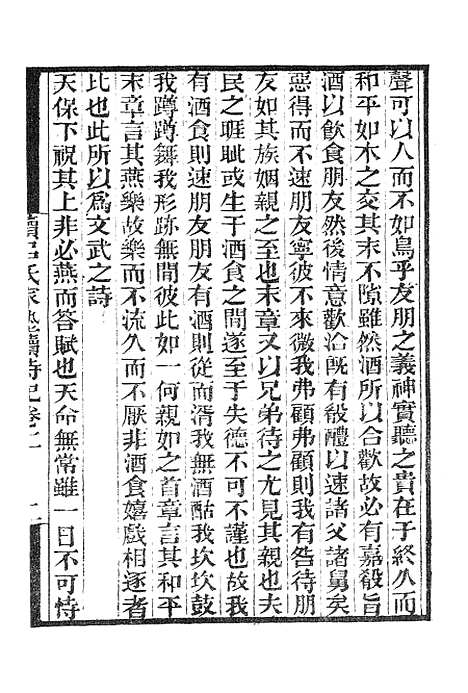 聲可以人而不如鳥乎友朋之義神實聽之貴在于終久而
和平如木之交其末不隙雖然酒所以合歡故必有嘉殽旨
酒以飲食朋友然後情意歡洽旣有殽醴以速諸父諸舅矣
惡得而不速朋友寧彼不來微我弗顧弗顧則我有咎待朋
友如其族姻親之至也末章又以兄弟待之尤見其親也夫
民之睚眦或生于酒食之間遂至于失德不可不謹也故我
有酒食則速朋友朋友有酒則從而湑我無酒酤我坎坎鼓
我蹲蹲舞我形跡無間彼此如一何親如之首章言其和平
末章言其燕樂故樂而不流久而不厭非酒食嬉戲相逐者
比也此所以爲文武之詩
天保下祝其上非必燕而答賦也天命無常雖一日不可恃
續呂氏家塾讀詩記卷二